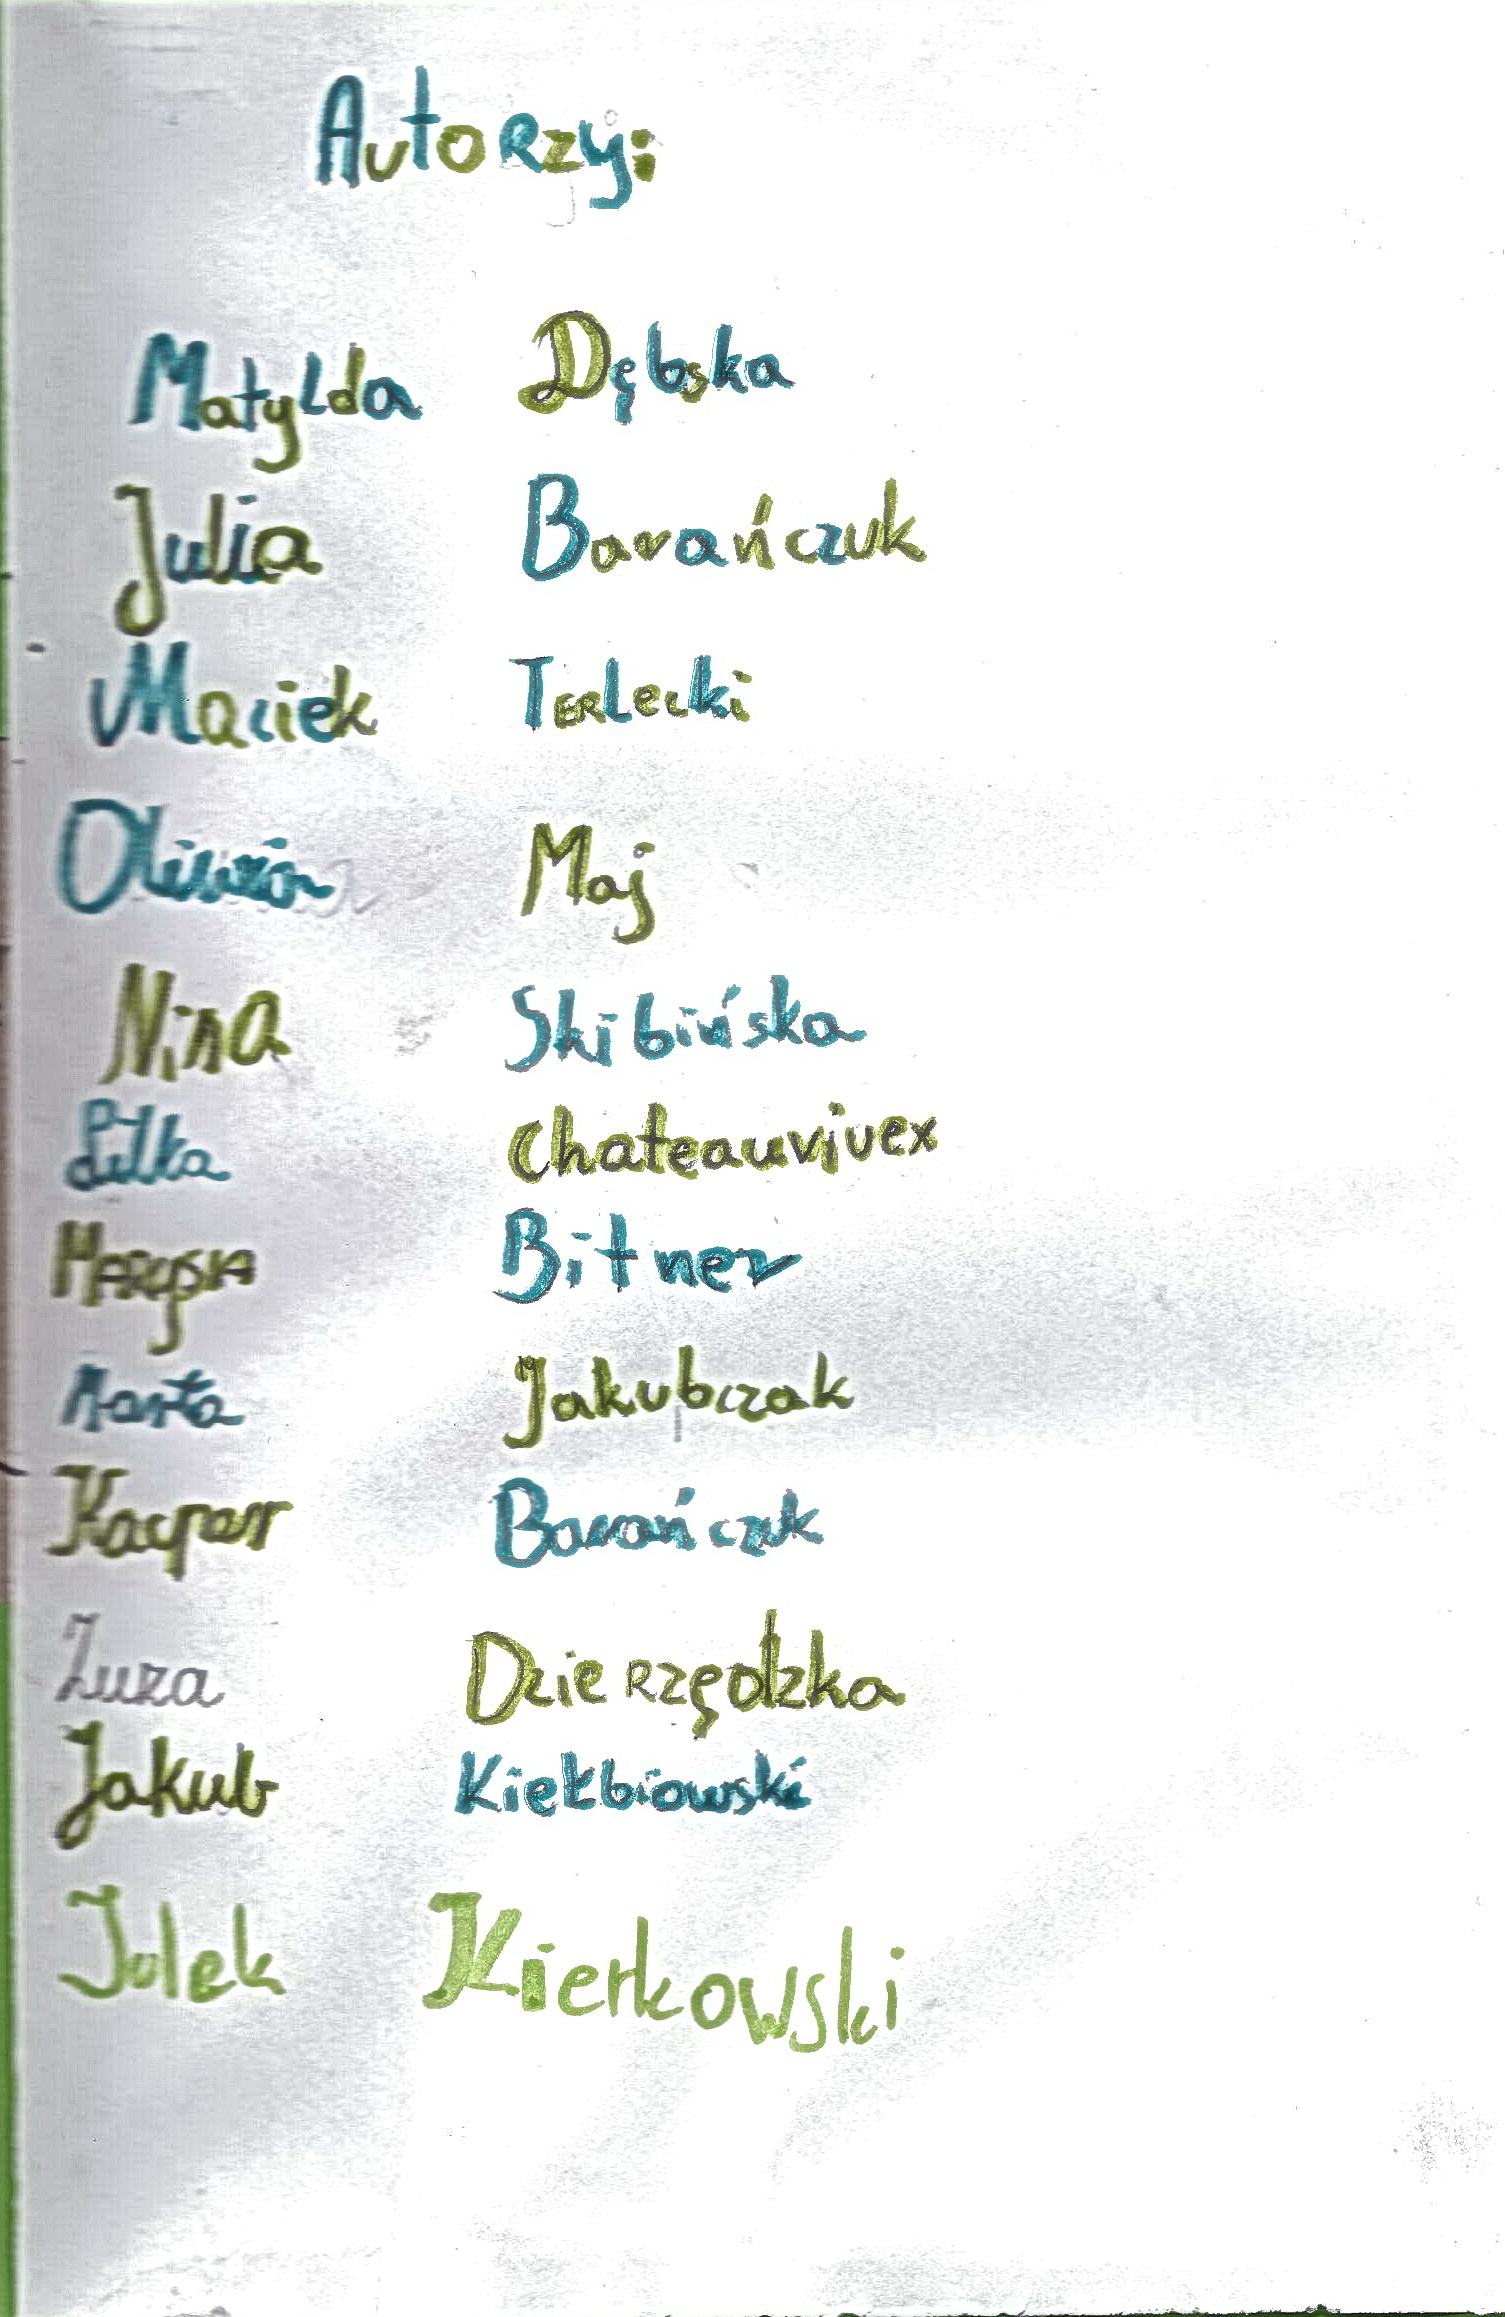 Autorzy:
Matylda Dębska
Julia Barańczuk
Maciek Terlecki
Oliwia Maj
Nina Skibińska
Lilka Chateauvivex
Marysia Bitner
Marta Jakubczak
Kacper Barańczuk
Zuza Dzierzędzka
Jakub Kiełbiowski
Julek Kierkowski